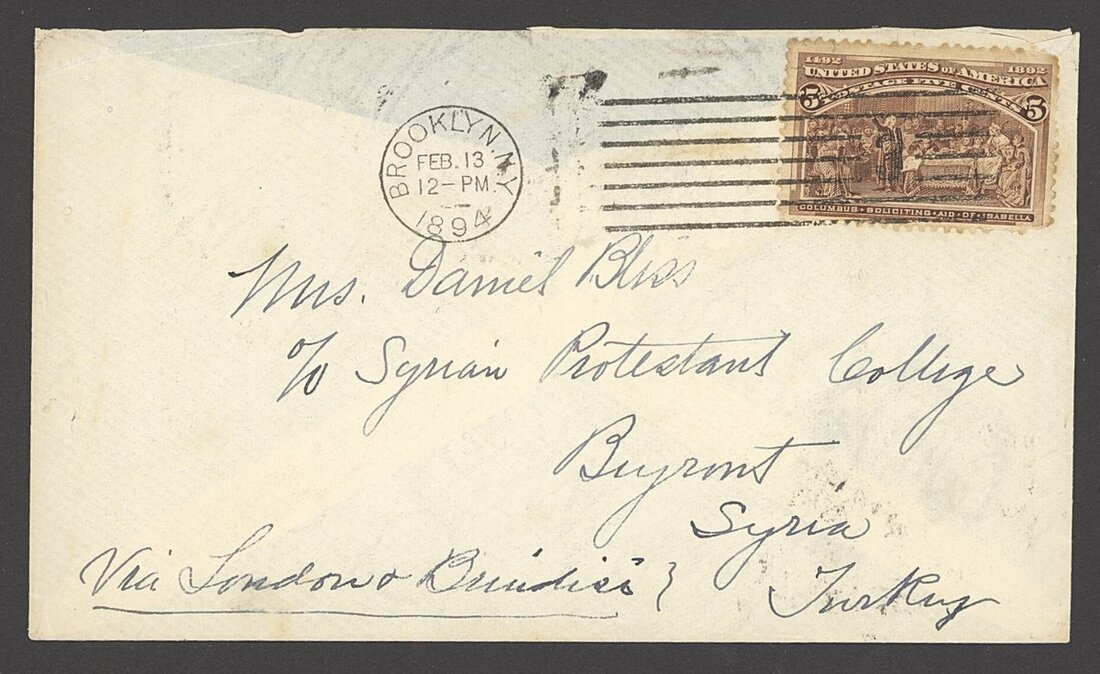 1492 1892
UNITED STATES OF AMERICA
5 POSTAGE FIVE CENTS 5
COLUMBUS · SOLICITING · AID · OF · ISABELLA
BROOKLYN. N.Y.
FEB. 13
12 - PM
1894
Mrs. Daniel Bliss
c/o Syrian Protestant College
Beyrout,
Syria
Turkey
Via London & Brindisi }